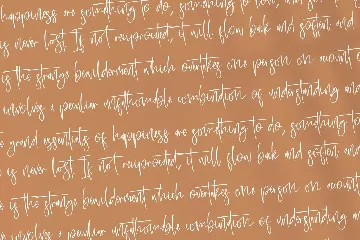 happiness are something to do, something to
is never lost. If not reciprocated, it will flow back and soften and
is the strange bewilderment which overtakes one person on account of
involves a peculiar unfathomable combination of understanding and
grand essentials of happiness are something to do, something to
is never lost. If not reciprocated, it will flow back and soften and
is the strange bewilderment which overtakes one person on account
involves a peculiar unfathomable combination of understanding